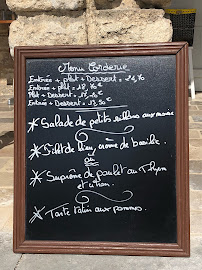 Menu Corderie
Entrée + plat + Dessert =
Entrée + plat =
Plat + Dessert =
Entrée + Dessert =
* Salade de petits
* Filet de lieu, crème de basilic.
ou
* Suprême de poulet au Thym
et citron.
* Tarte tatin aux pommes.